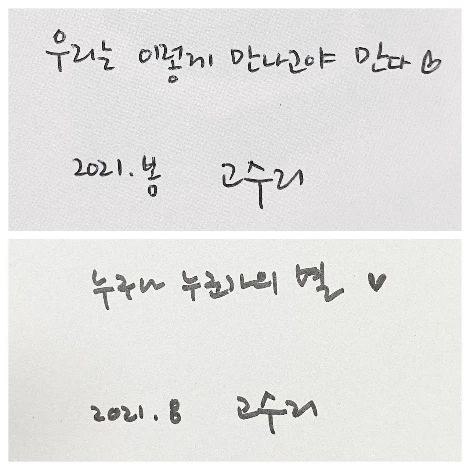 우리는 이렇게 만나고야 만다
2021. 봄 고수리
누구나 누군가의 별 ♥
2021. 8 고수리